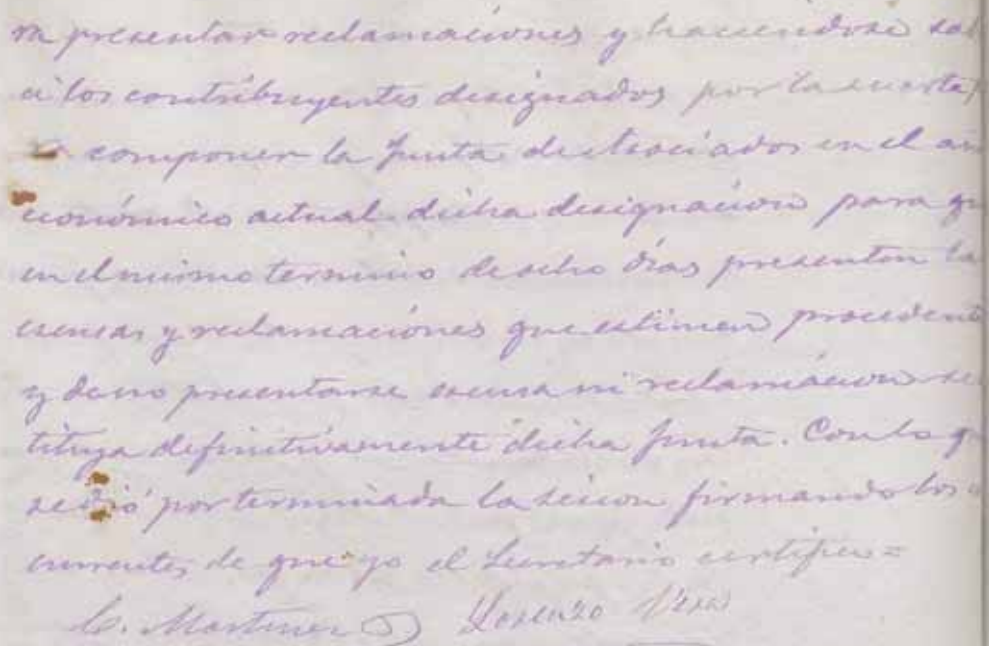 ra presentar reclamaciones y haciendose sab
á los contribuyentes designados por la suerte p
componer la Junta de Asociados en el añ
económico actual dicha designación para qu
en el mismo termino de ocho días presenten la
escusas y reclamaciones que estimen procedent
y de no presentarse escusa ni reclamación se
tituya definitivamente dicha Junta. Con lo q
se dió por terminada la sesion firmando los
currentes, de que yo el Secretario certifico =
C. Martinez Lorenzo